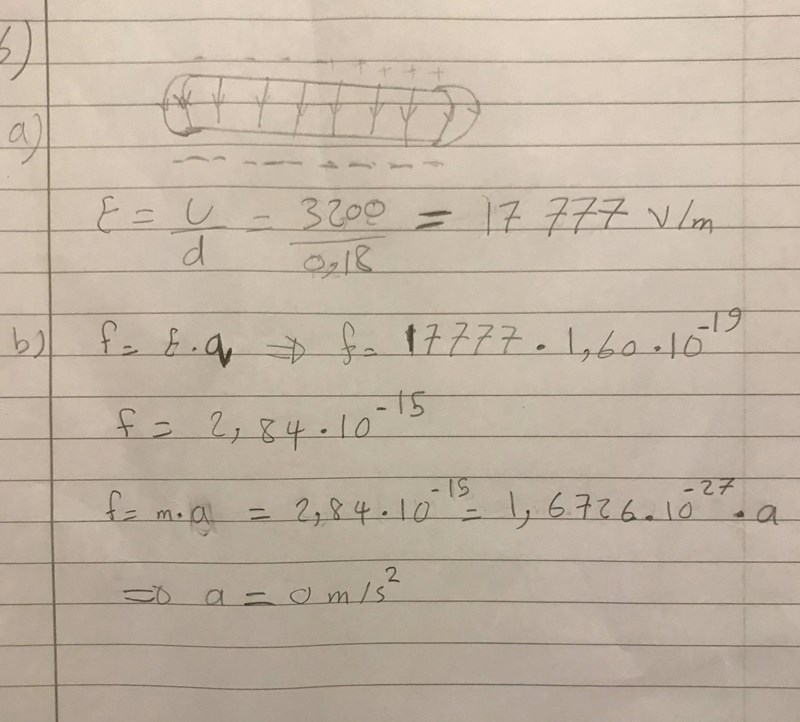 6)
a)
- - - - + + + + +
- - - - - - - - -
ε = U/d = 3200/0,18 = 17 777 V/m
b) f = ε.q ⇒ f = 17777 . 1,60 . 10^-19
f = 2,84 . 10^-15
f = m.a = 2,84 . 10^-15 = 1,6726 . 10^-27 . a
⇒ a = 0 m/s²